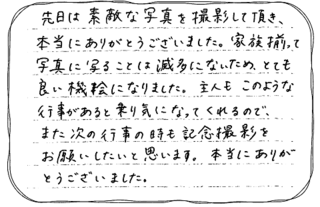 先日は素敵な写真を撮影して頂き、
本当にありがとうございました。家族揃って
写真に写ることは滅多にないため、とても
良い機会になりました。主人もこのような
行事があると乗り気になってくれるので、
また次の行事の時も記念撮影を
お願いしたいと思います。本当にありが
とうございました。